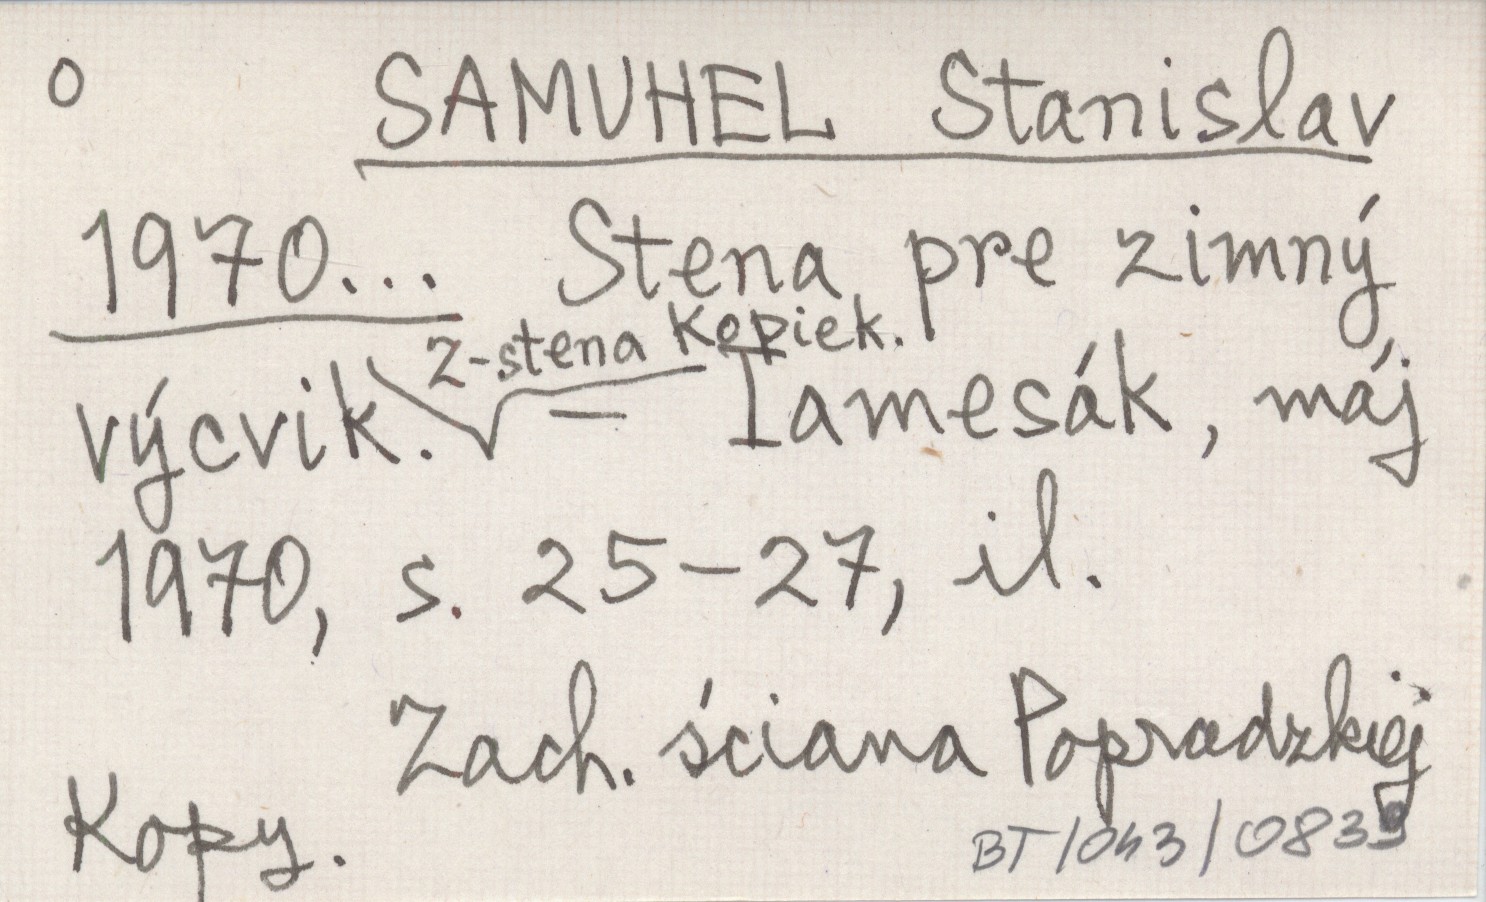 o SAMUHEL Stanislav
1970... Stena pre zimný
Z-stena Kopiek.
výcvik. — Iamesák, máj
1970, s. 25-27, il.
Zach. ściana Popradzkiej
Kopy.
BT/043/0839